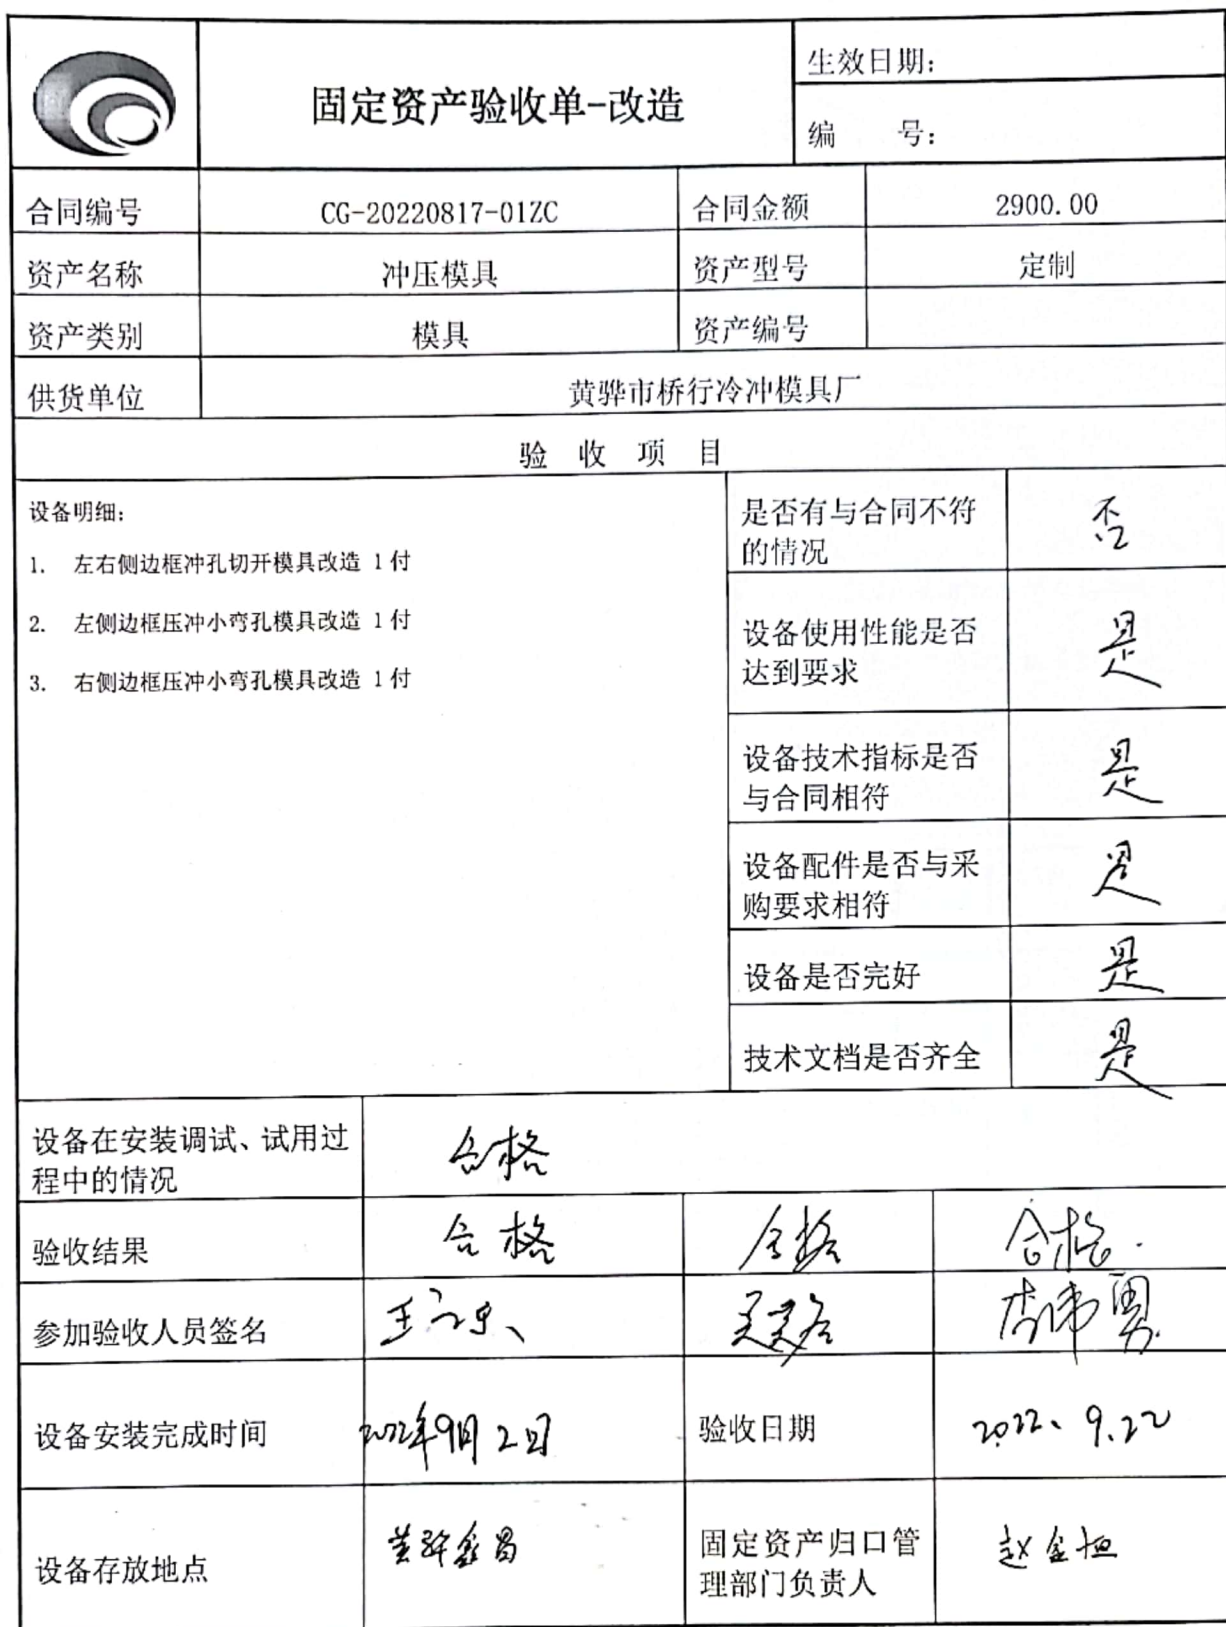 固定资产验收单-改造
生效日期：
编 号：
合同编号 CG-20220817-01ZC 合同金额 2900.00
资产名称 冲压模具 资产型号 定制
资产类别 模具 资产编号
供货单位 黄骅市桥行冷冲模具厂
验 收 项 目
设备明细：
1. 左右侧边框冲孔切开模具改造 1付
2. 左侧边框压冲小弯孔模具改造 1付
3. 右侧边框压冲小弯孔模具改造 1付
是否有与合同不符
的情况
否
设备使用性能是否
达到要求
是
设备技术指标是否
与合同相符
是
设备配件是否与采
购要求相符
是
设备是否完好 是
技术文档是否齐全 是
设备在安装调试、试用过
程中的情况
合格
验收结果 合格 合格 合格
参加验收人员签名 李伟男
设备安装完成时间 2022年9月2日 验收日期 2022、9.22
设备存放地点 黄骅鑫昌
固定资产归口管
理部门负责人
赵金恒